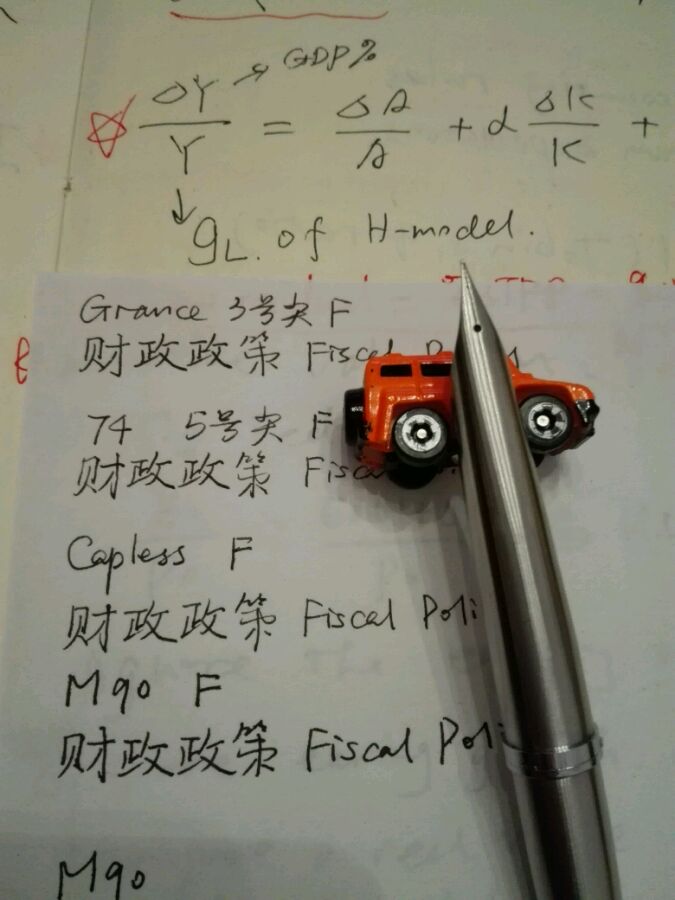 ΔY → GDP%
— = ΔA/A + α ΔK/K +
Y
↓
gL. of H-model.
Grance 3号尖 F
财政政策 Fiscal P
74 5号尖 F
财政政策 Fisca
Capless F
财政政策 Fiscal Poli
M90 F
财政政策 Fiscal Pol
M90